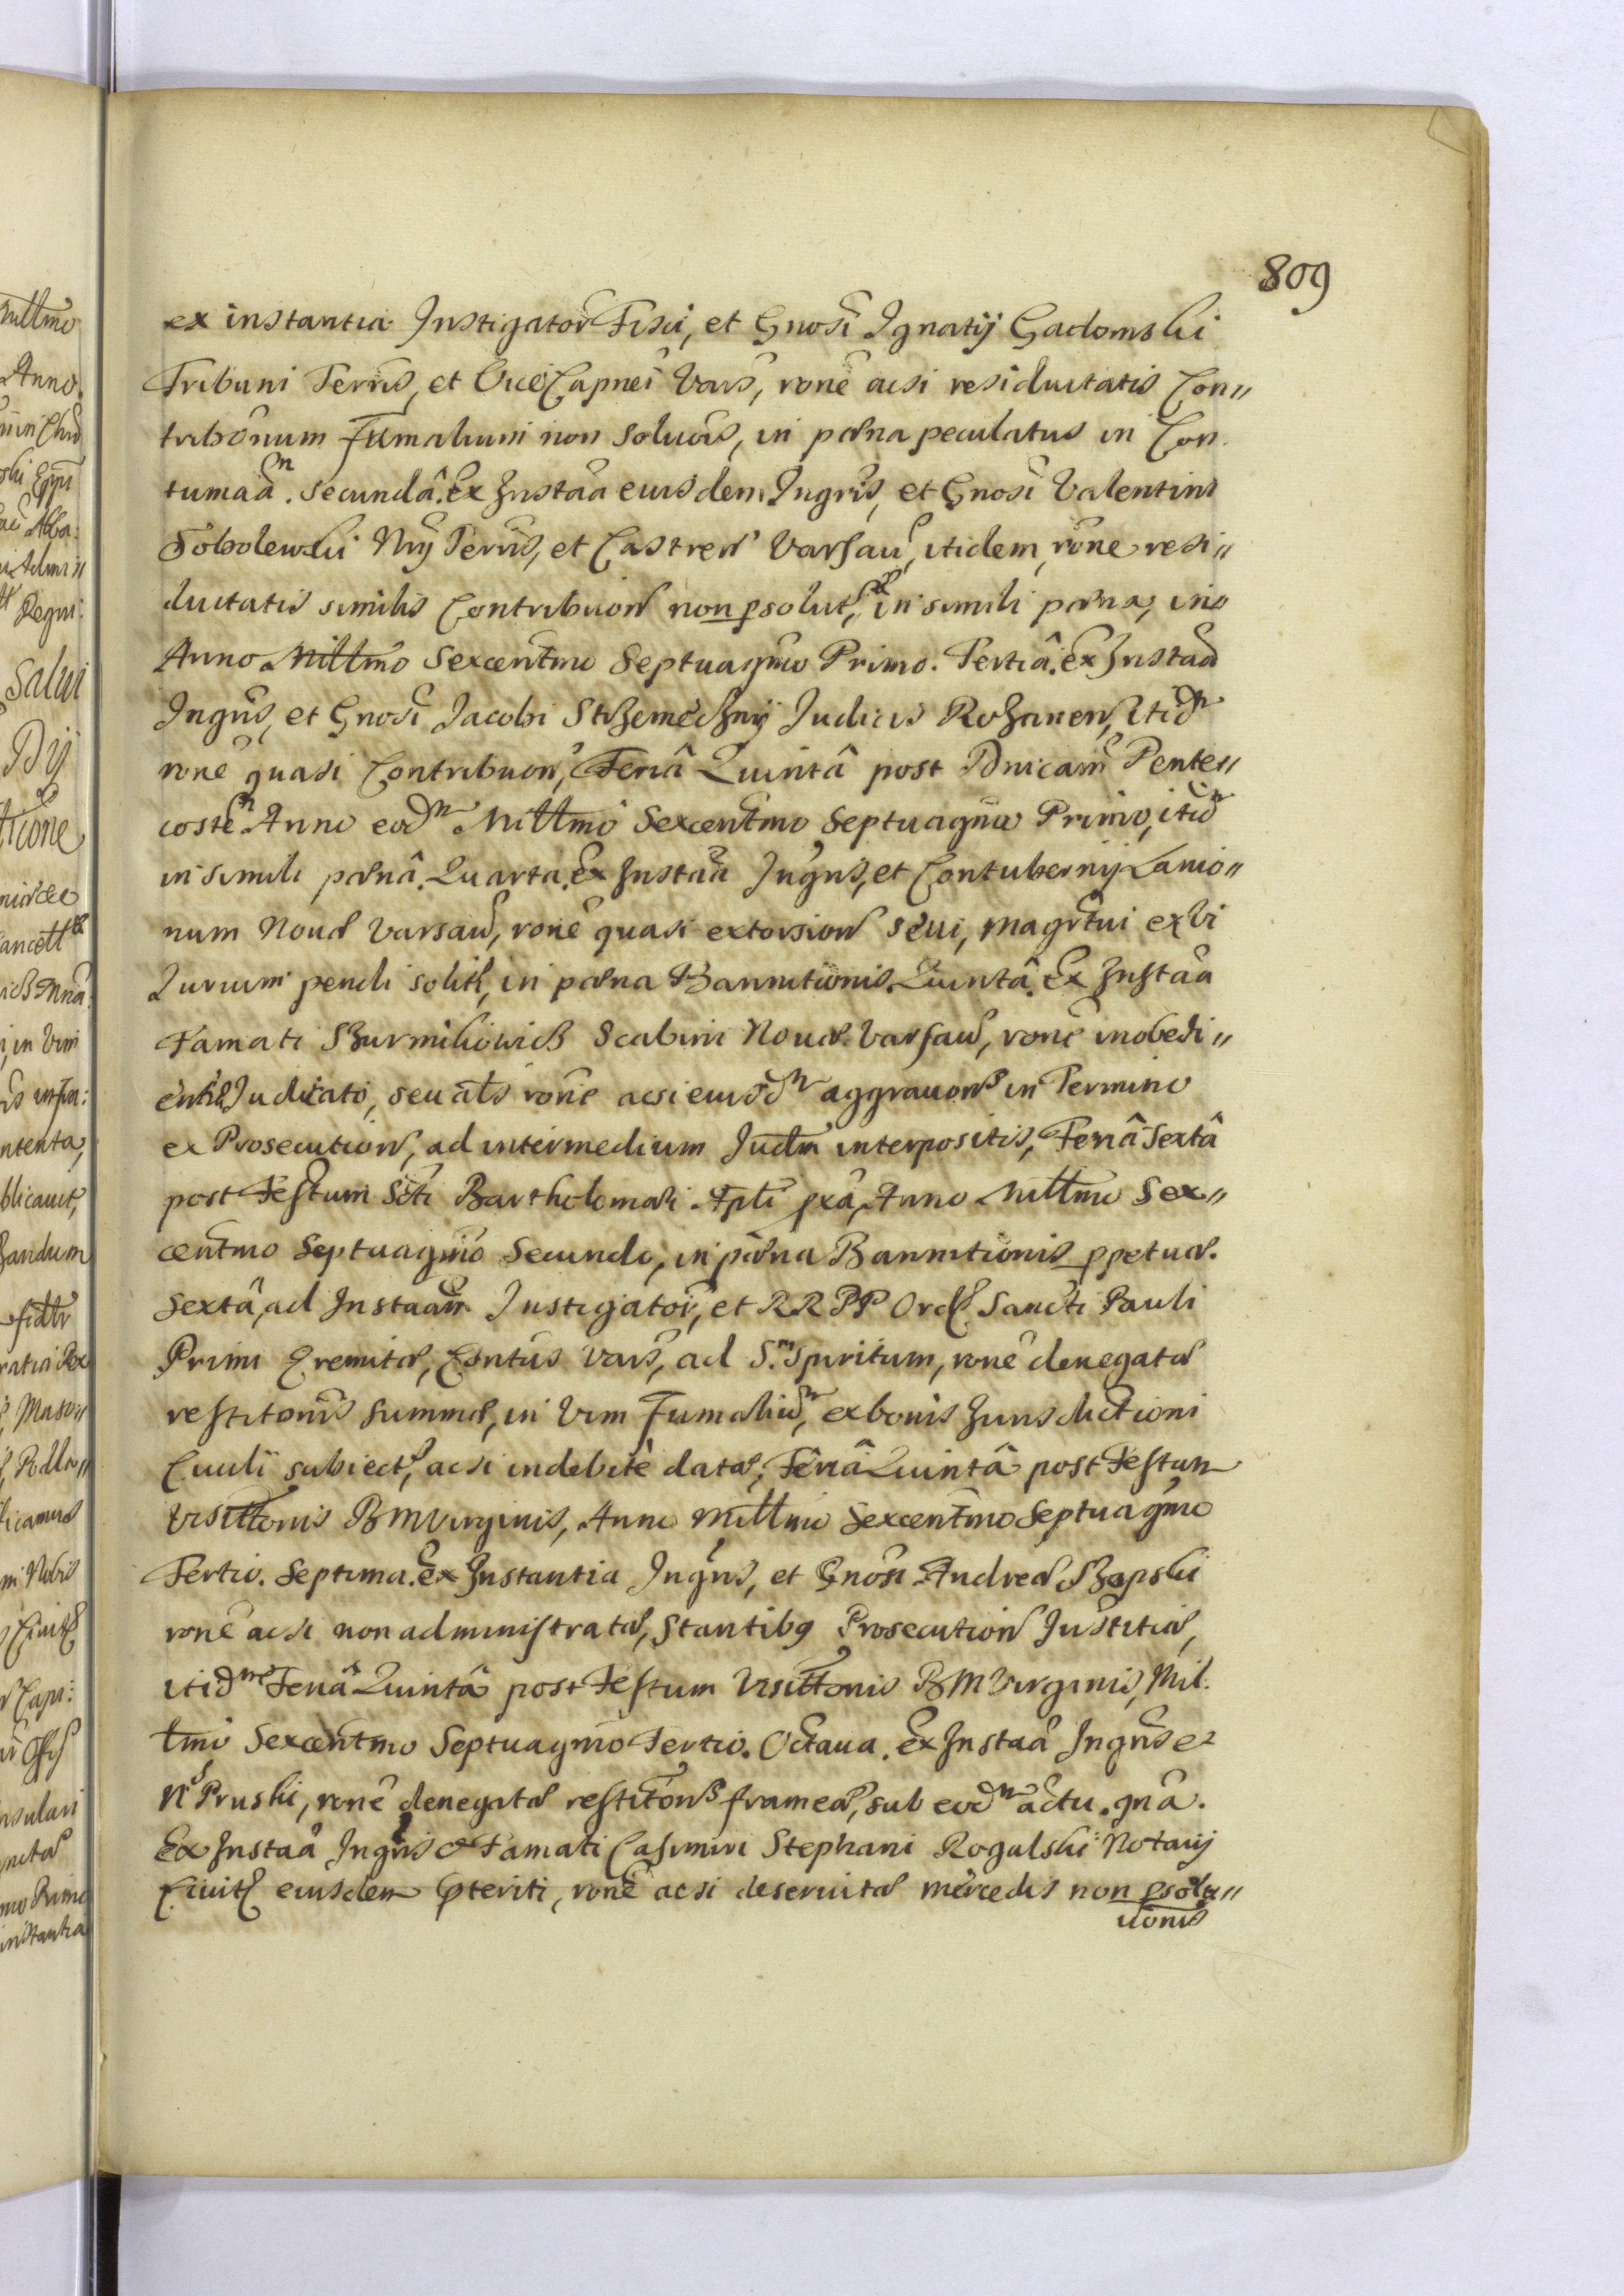 809
ex instantia Instigator Fisci, et Gnosi Ignatij Gadomski
Tribuni Terris, et ViceCapnei Vars, rone acsi residuitatis Con„
tribonum Fumalium non Soluois, in poena peculatus in Con„
tumaam. Secundâ. Ex Instaa eiusdem Ingris, et Gnosi Valentini
Sobolewski Nrij Terris, et Castren Varsau, itidem, rone resi„
duitatis similis Contribuon non psolut, in simili poena, in
Anno Millmo Sexcentmo Septuagmo Primo. Tertiâ. Ex Instaa
Ingris, et Gnosi Jacobi Judicis Rozanen, Itidm
rone quasi Contribuon, Feriâ Quintâ post Dnicam Pente„
costen Anno eodm Millmo Sexcentmo Septuagmo Primo, itid
in simili poenâ. Quarta. Ex Instaa Ingris, et Contubernij Lanio„
num Nouae Varsau, rone quasi extorsion seui, magrtui ex Vi
Iurium pendi solit, in poena Bannitionis. Quintâ. Ex Instaa
Famati Scabini Nouae Varsau, rone inobedi„
entiae Judicato, seu als rone acsi eiusdm aggrauons in Termino
ex Prosecution, ad intermedium Judm interpositis, Feriâ Sextâ
post Festum Scti Bartholomaei Apli pxa, Anno Millmo Sex„
centmo Septuagmo Secundo, in poena Bannitionis ppetuae.
Sextâ, ad Instaam Instigator, et RR PP Ord Sancti Pauli
Primi Eremitae, Contus Vars, ad S.m Spiritum, rone denegatae
restitonis summae, in Vim Fumaliu, ex bonis Iurisdictioni
Ciuili subiect, acsi indebite datae, Feriâ Quintâ post Festum
Visittonis BMVirginis, Anno Millmo Sexcentmo Septuagmo
Tertio. Septima. Ex Instantia Ingris, et Gnosi Andreae
rone acsi non administratae, Stantibg Prosecution Justitiae,
itidm Feriâ Quintâ post Festum Visittonis BMVirginis, Mil„
lmo Sexcentmo Septuagmo Tertio. Octaua. Ex Instaa Ingris et
Nis Pruski, rone denegatae restitons frameae, sub eodm actu.
Ex Instaa Ingris et Famati Casimiri Stephani Rogalski Notarij
Ciuit eiusdem pteriti, rone acsi deseruitae mercedis non psolu„
tionis